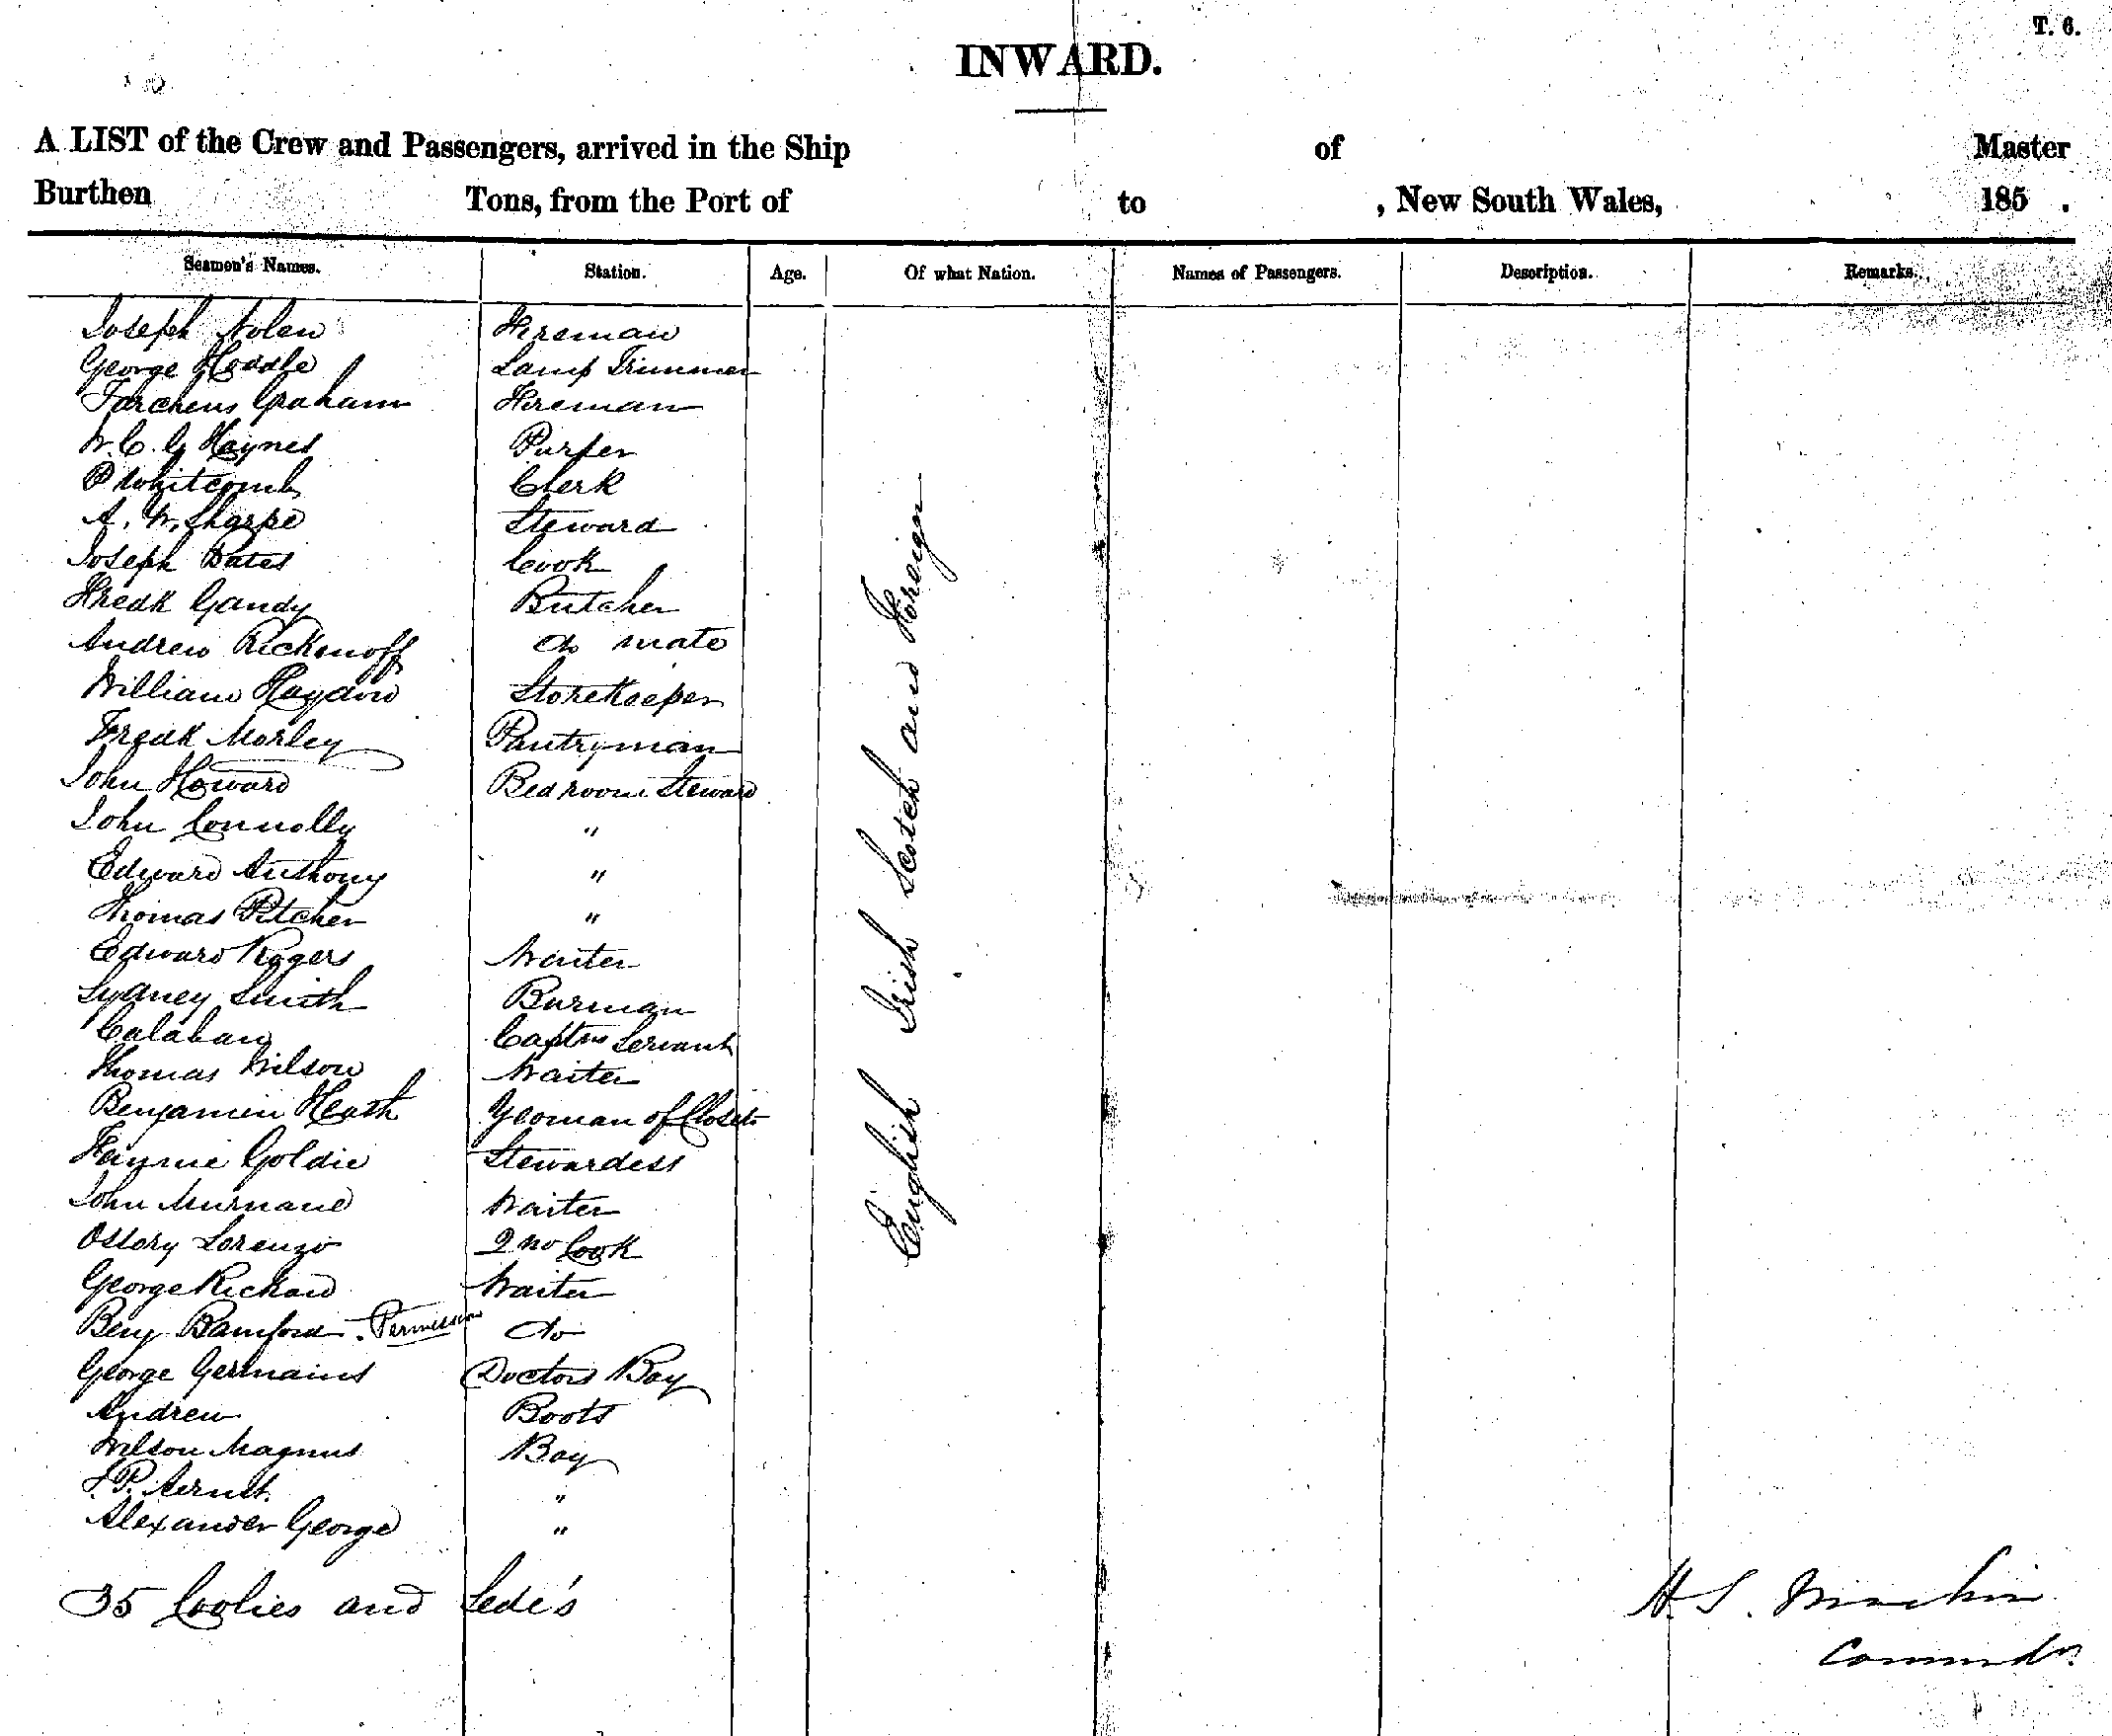 T. 6.
INWARD.
A LIST of the Crew and Passengers, arrived in the Ship of Master
Burthen Tons, from the Port of to , New South Wales, 185 .
Seamen's Names. Station. Age. Of what Nation. Names of Passengers. Description. Remarks.
Joseph Nolen Fireman
George Lamp Trimmer
Graham Fireman
W. C. G Haynes Purser
P Whitcomb Clerk
A. W. Sharpe Steward
Joseph Bates Cook
Fredk Gandy Butcher
Andrew Rickmoff do mate
William Haydon StoreKeeper
Fredk Morley Pantryman
John Howard Bedroom Steward
John Connolly "
Edward Anthony "
Thomas Pitcher "
Edward Rogers Waiter
Sydney Smith Barman
Calahan Captns Servant
Thomas Wilson Waiter
Benjamin Heath Yeoman of Closets
Fannie Goldie Stewardess
John Murnane Waiter
Ossory Lorenzo 2nd Cook
George Richard Waiter
Benj Bamford. Permission do
George Germains Doctors Boy
Andrew Boots
Wilson Magnus Boy
"
Alexander George "
35 Coolies and Sedi's
English Irish Scotch and Foreign
H. S.
Commdr